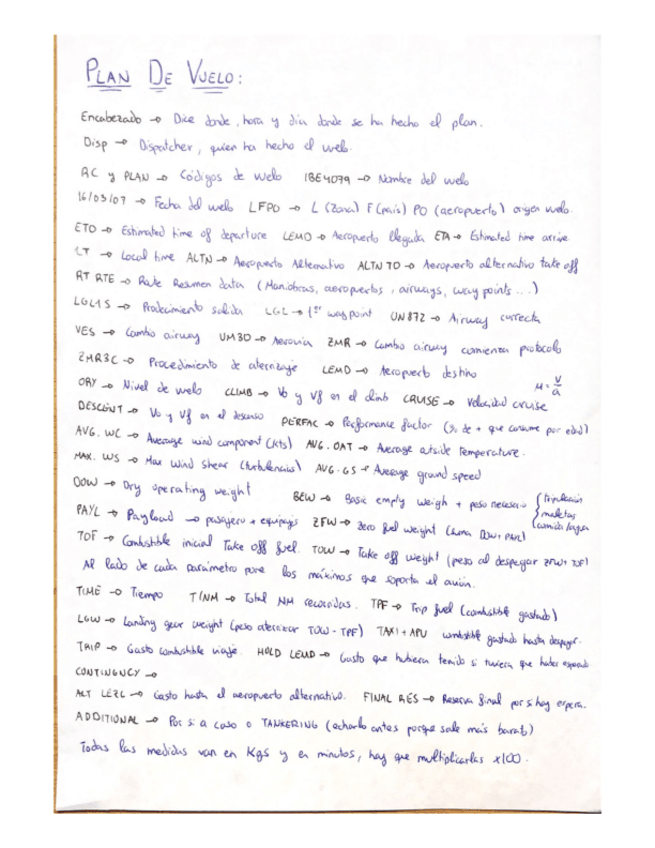 PLAN DE VUELO:
Encabezado → Dice donde, hora y día donde se ha hecho el plan.
Disp → Dispatcher, quien ha hecho el vuelo.
RC y PLAN → Códigos de vuelo IBE4079 → Nombre del vuelo
16/03/07 → Fecha del vuelo LFPO → L (Zona) F (país) PO (aeropuerto) origen vuelo.
ETD → Estimated time of departure LEMD → Aeropuerto llegada ETA → Estimated time arrive
LT → Local time ALTN → Aeropuerto Alternativo ALTN TO → Aeropuerto alternativo take off
RT RTE → Rute Resumen data (Maniobras, aeropuertos, airways, way points...)
LGL1S → Procedimiento salida LGL → 1er waypoint UN872 → Airway correcta
VES → Cambio airway UM30 → Aerovía ZMR → Cambio airway comienza protocolo
ZMR3C → Procedimiento de aterrizaje LEMD → Aeropuerto destino
ORY → Nivel de vuelo CLIMB → Vo y Vf en el climb CRUISE → Velocidad cruise M = V/a
DESCENT → Vo y Vf en el descenso PERFAC → Performance factor (% de + que consume por edad)
AVG. WC → Average wind component (kts) AVG. OAT → Average outside temperature.
MAX. WS → Max Wind Shear (turbulencias) AVG. GS → Average ground speed
DOW → Dry operating weight BEW → Basic empty weigh + peso necesario { tripulación maletas comida/agua
PAYL → Payload → pasajeros + equipajes ZFW → Zero fuel weight (suma DOW + PAYL)
TOF → Combustible inicial Take off fuel. TOW → Take off weight (peso al despegar ZFW + TOF)
Al lado de cada parámetro pone los máximos que soporta el avión.
TIME → Tiempo T/NM → Total NM recorridas. TPF → Trip fuel (combustible gastado)
LGW → Landing gear weight (peso aterrizar TOW - TPF) TAXI + APU combustible gastado hasta despegar.
TRIP → Gasto combustible viaje. HOLD LEMD → Gasto que hubiera tenido si tuviera que haber esperado
CONTINGNCY →
ALT LEZL → Gasto hasta el aeropuerto alternativo. FINAL RES → Reserva final por si hay espera.
ADDITIONAL → Por si a caso o TANKERING (echarlo antes porque sale más barato)
Todas las medidas van en Kgs y en minutos, hay que multiplicarlas x100.